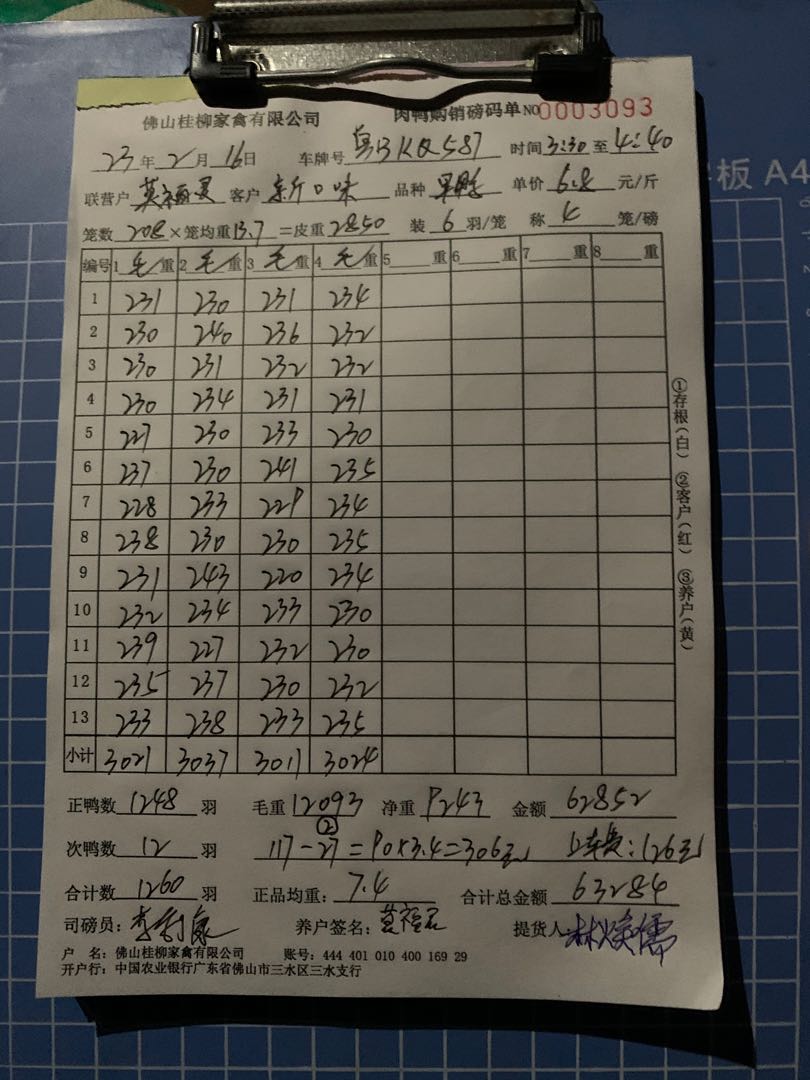 佛山桂柳家禽有限公司 肉鸭购销磅码单 NO0003093
23年2月16日 车牌号粤BKQ587 时间3:30至4:40
联营户 客户新口味 品种果鸭 单价6.8元/斤
笼数208×笼均重13.7=皮重2850 装6羽/笼 称4笼/磅
编号 1毛重 2毛重 3毛重 4毛重 5重 6重 7重 8重
1 231 230 231 234
2 230 240 236 232
3 230 231 232 232
4 230 234 231 231
5 227 230 233 230
6 237 230 241 235
7 228 233 229 234
8 238 230 230 235
9 231 243 220 234
10 232 234 233 230
11 239 227 232 230
12 235 237 230 232
13 233 238 233 235
小计 3021 3037 3011 3024
正鸭数1248羽 毛重12093 净重9243 金额62852
②
次鸭数12羽 117-27=90×3.4=306元 上车费:126元
合计数1260羽 正品均重:7.4 合计总金额63284
司磅员: 养户签名: 提货人
户 名:佛山桂柳家禽有限公司 账号:444 401 010 400 169 29
开户行:中国农业银行广东省佛山市三水区三水支行
①存根(白) ②客户(红) ③养户(黄)
板 A4